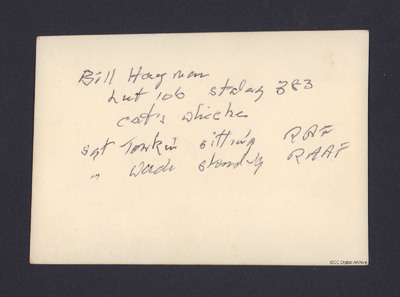 Bill Hayman
hut 106 stalag 383
cat's whisker
sgt Tomkin sitting RAF
" Wade standing RAAF
©CC Digital Archive